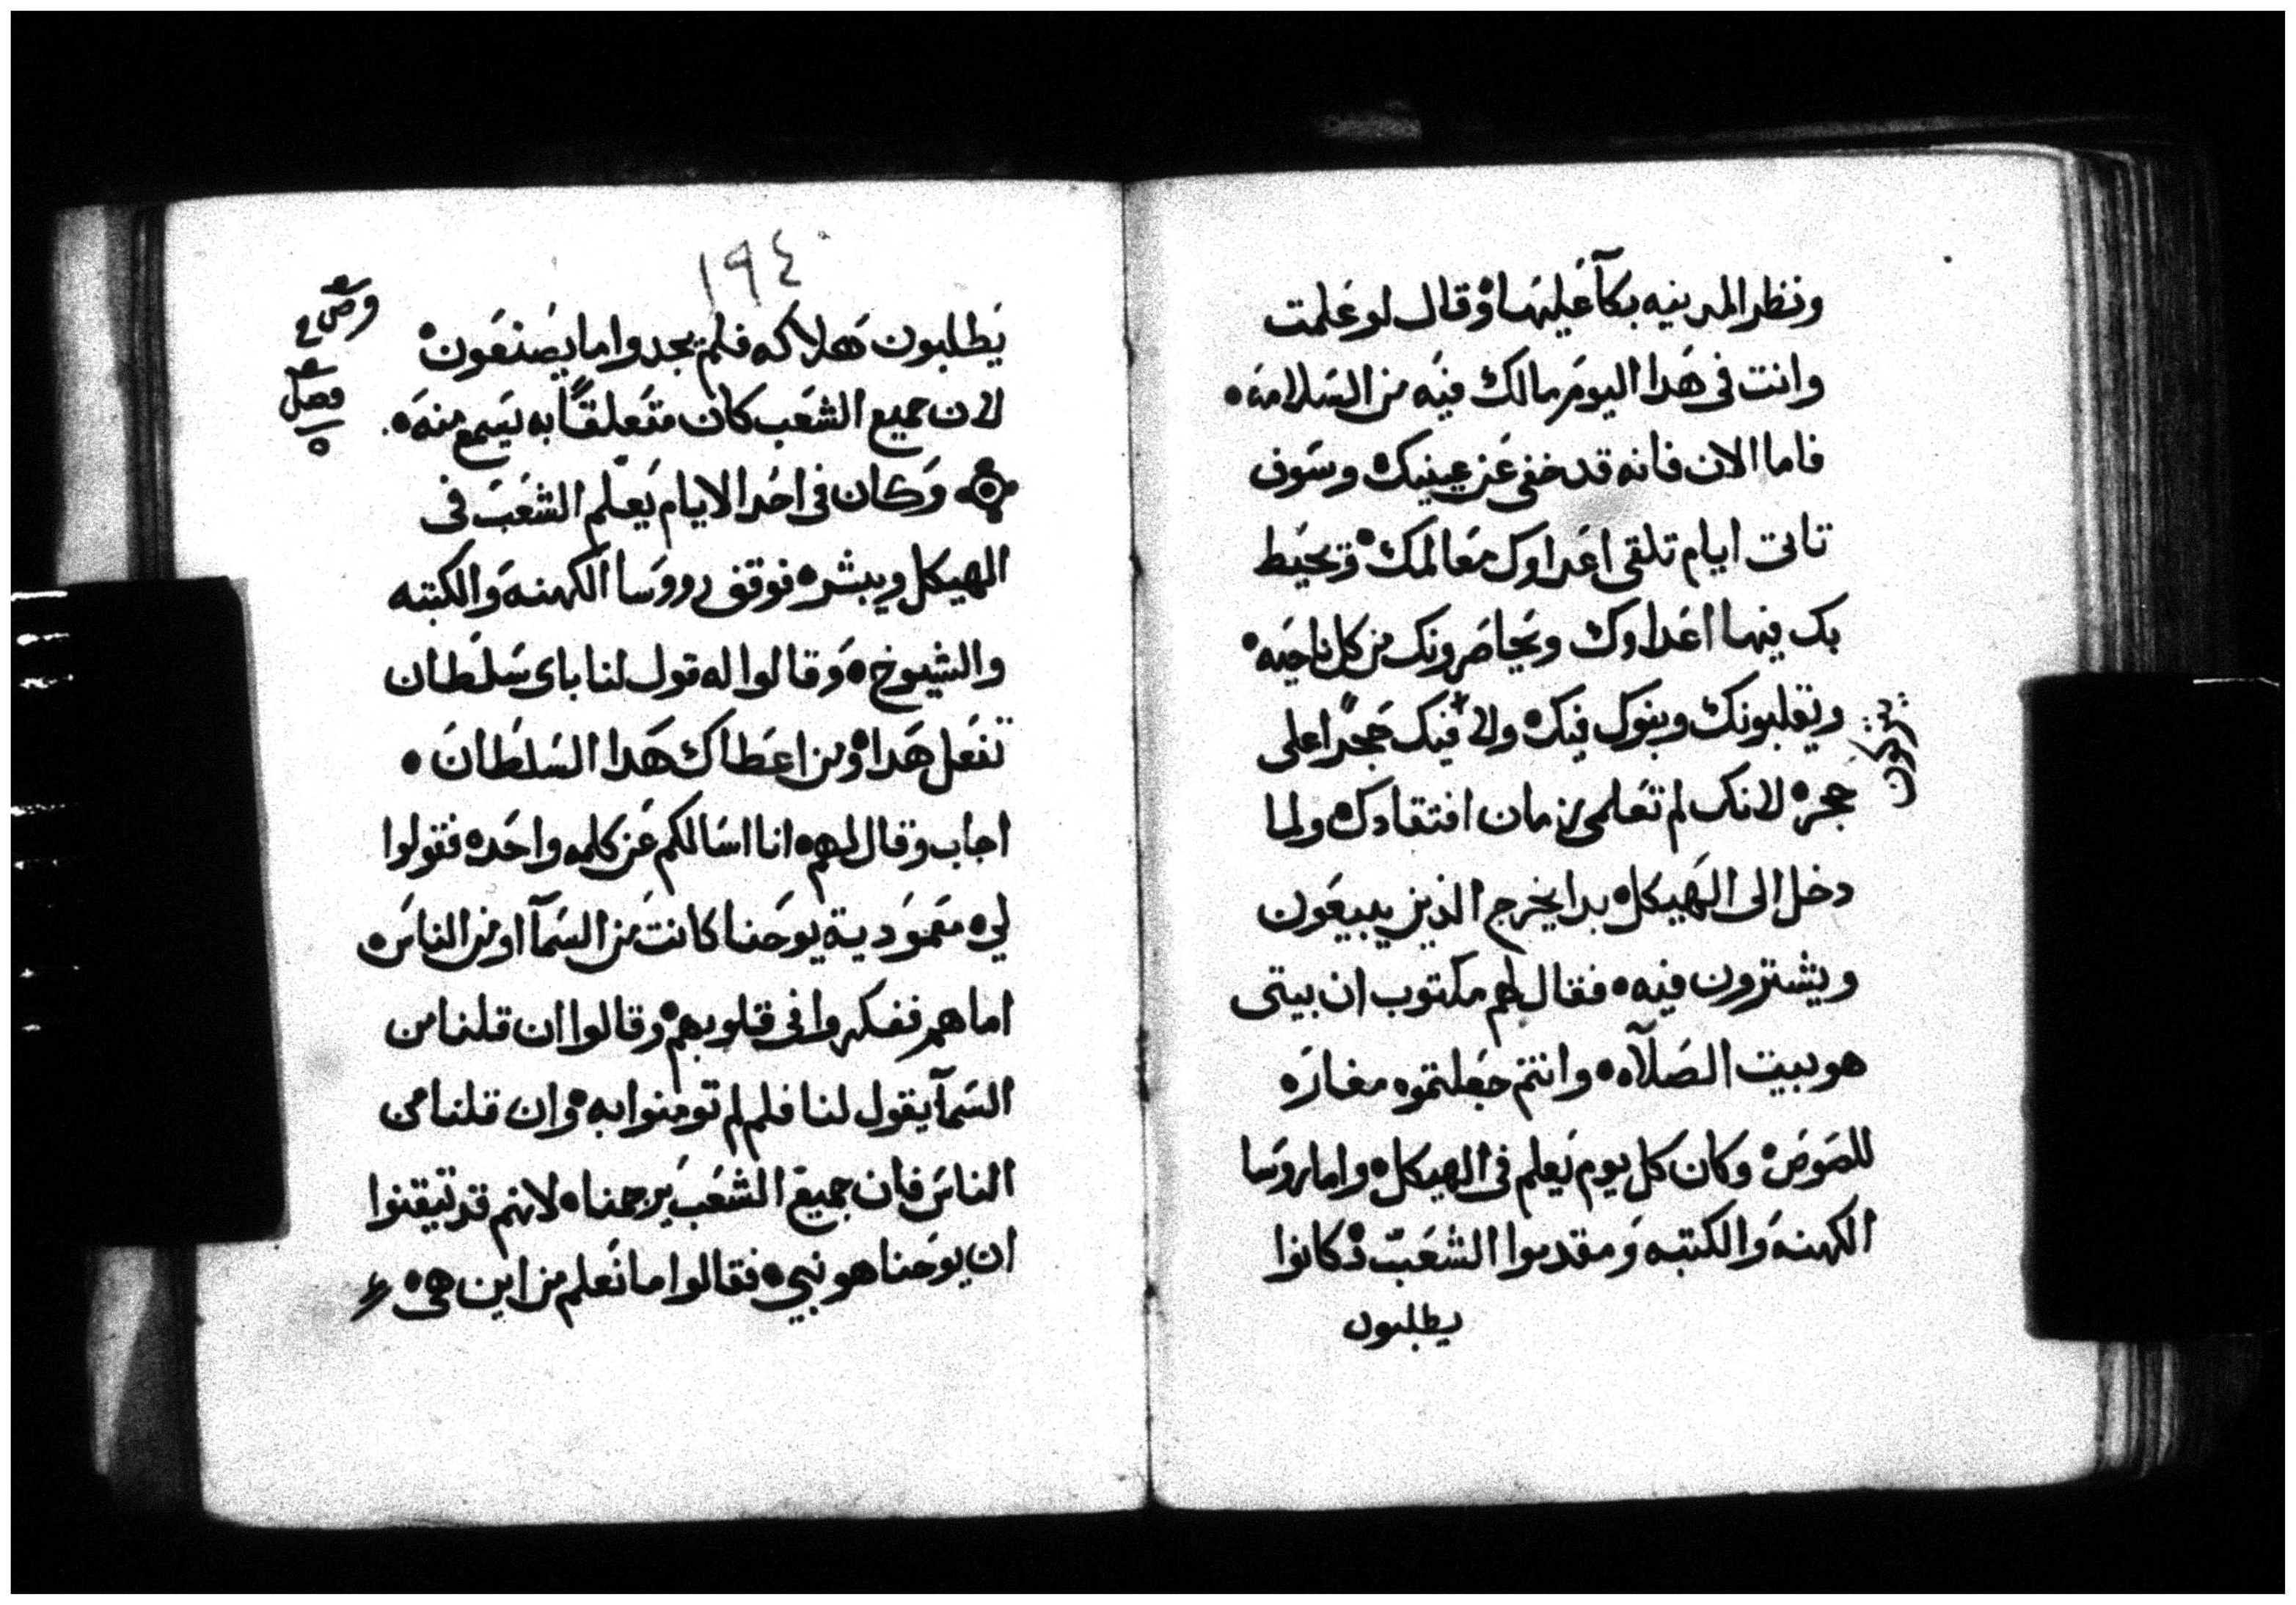 ونظر المدينه بكآ عليها وقال لو علمت
وانت في هدا اليوم مالك فيه من السلامه
فاما الان فانه قد خفي عن عينيك وسوف
تاتي ايام تلقي اعداوك معالمك وتحيط
بك فيها اعداوك ويحاصرونك من كل ناحيه
ويقلبونك وبنوك فيك ولا فيك حجرًا على
يتركون
حجر لانك لم تعلمي زمان افتقادك ولما
دخل الى الهيكل بدا يخرج الذين يبيعون
ويشترون فيه فقال لهم مكتوب ان بيتي
هو بيت الصلآه وانتم جعلتموه مغاره
للصوص وكان كل يوم يعلم في الهيكل واما روسا
الكهنه والكتبه ومقدموا الشعب فكانوا
يطلبون
١٩٤
يطلبون هلاكه فلم يجدوا ما يصنعون
لان جميع الشعب كان متعلقًا به يسمع منه
فصل
وكان في احد الايام يعلم الشعب في
الهيكل ويبشر فوقف رووسا الكهنه والكتبه
والشيوخ وقالوا له قول لنا باي سلطان
تفعل هدا ومن اعطاك هدا السلطان
اجاب وقال لهم انا اسالكم عن كلمه واحده فقولوا
لي معمودية يوحنا كانت من السمآ او من الناس
اما هم ففكروا في قلوبهم وقالوا ان قلنا من
السمآ يقول لنا فلم لم تومنوا به وان قلنا من
الناس فان جميع الشعب يرجمنا لانهم قد تيقنوا
ان يوحنا هو نبي فقالوا ما نعلم من اين هي